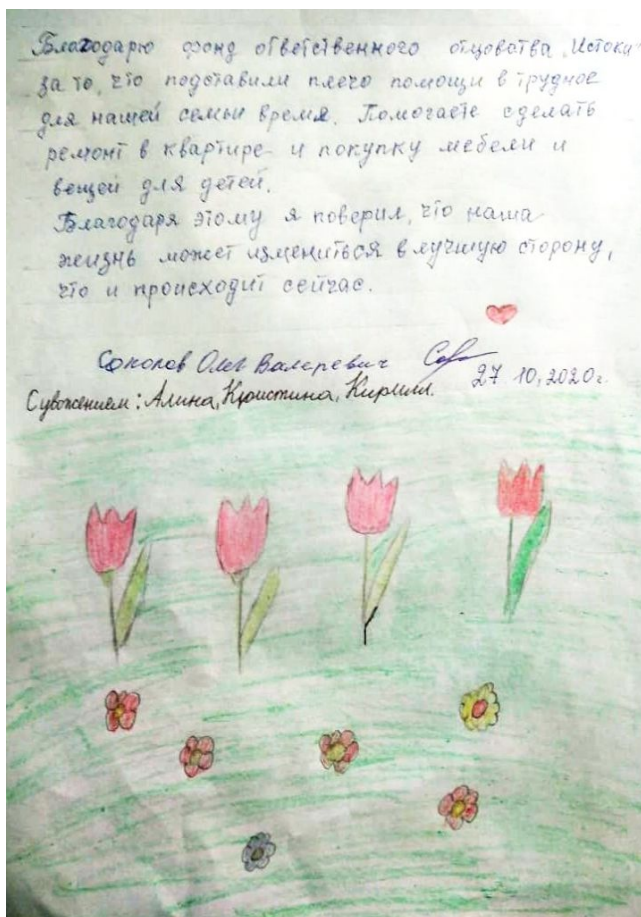 Благодарю фонд ответственного отцовства „Истоки“
за то, что подставили плечо помощи в трудное
для нашей семьи время. Помогаете сделать
ремонт в квартире и покупку мебели и
вещей для детей.
Благодаря этому я поверил, что наша
жизнь может измениться в лучшую сторону,
что и происходит сейчас.
Соколов Олег Валеревич
27 10, 2020 г.
С уважением: Алина, Кристина, Кирилл.